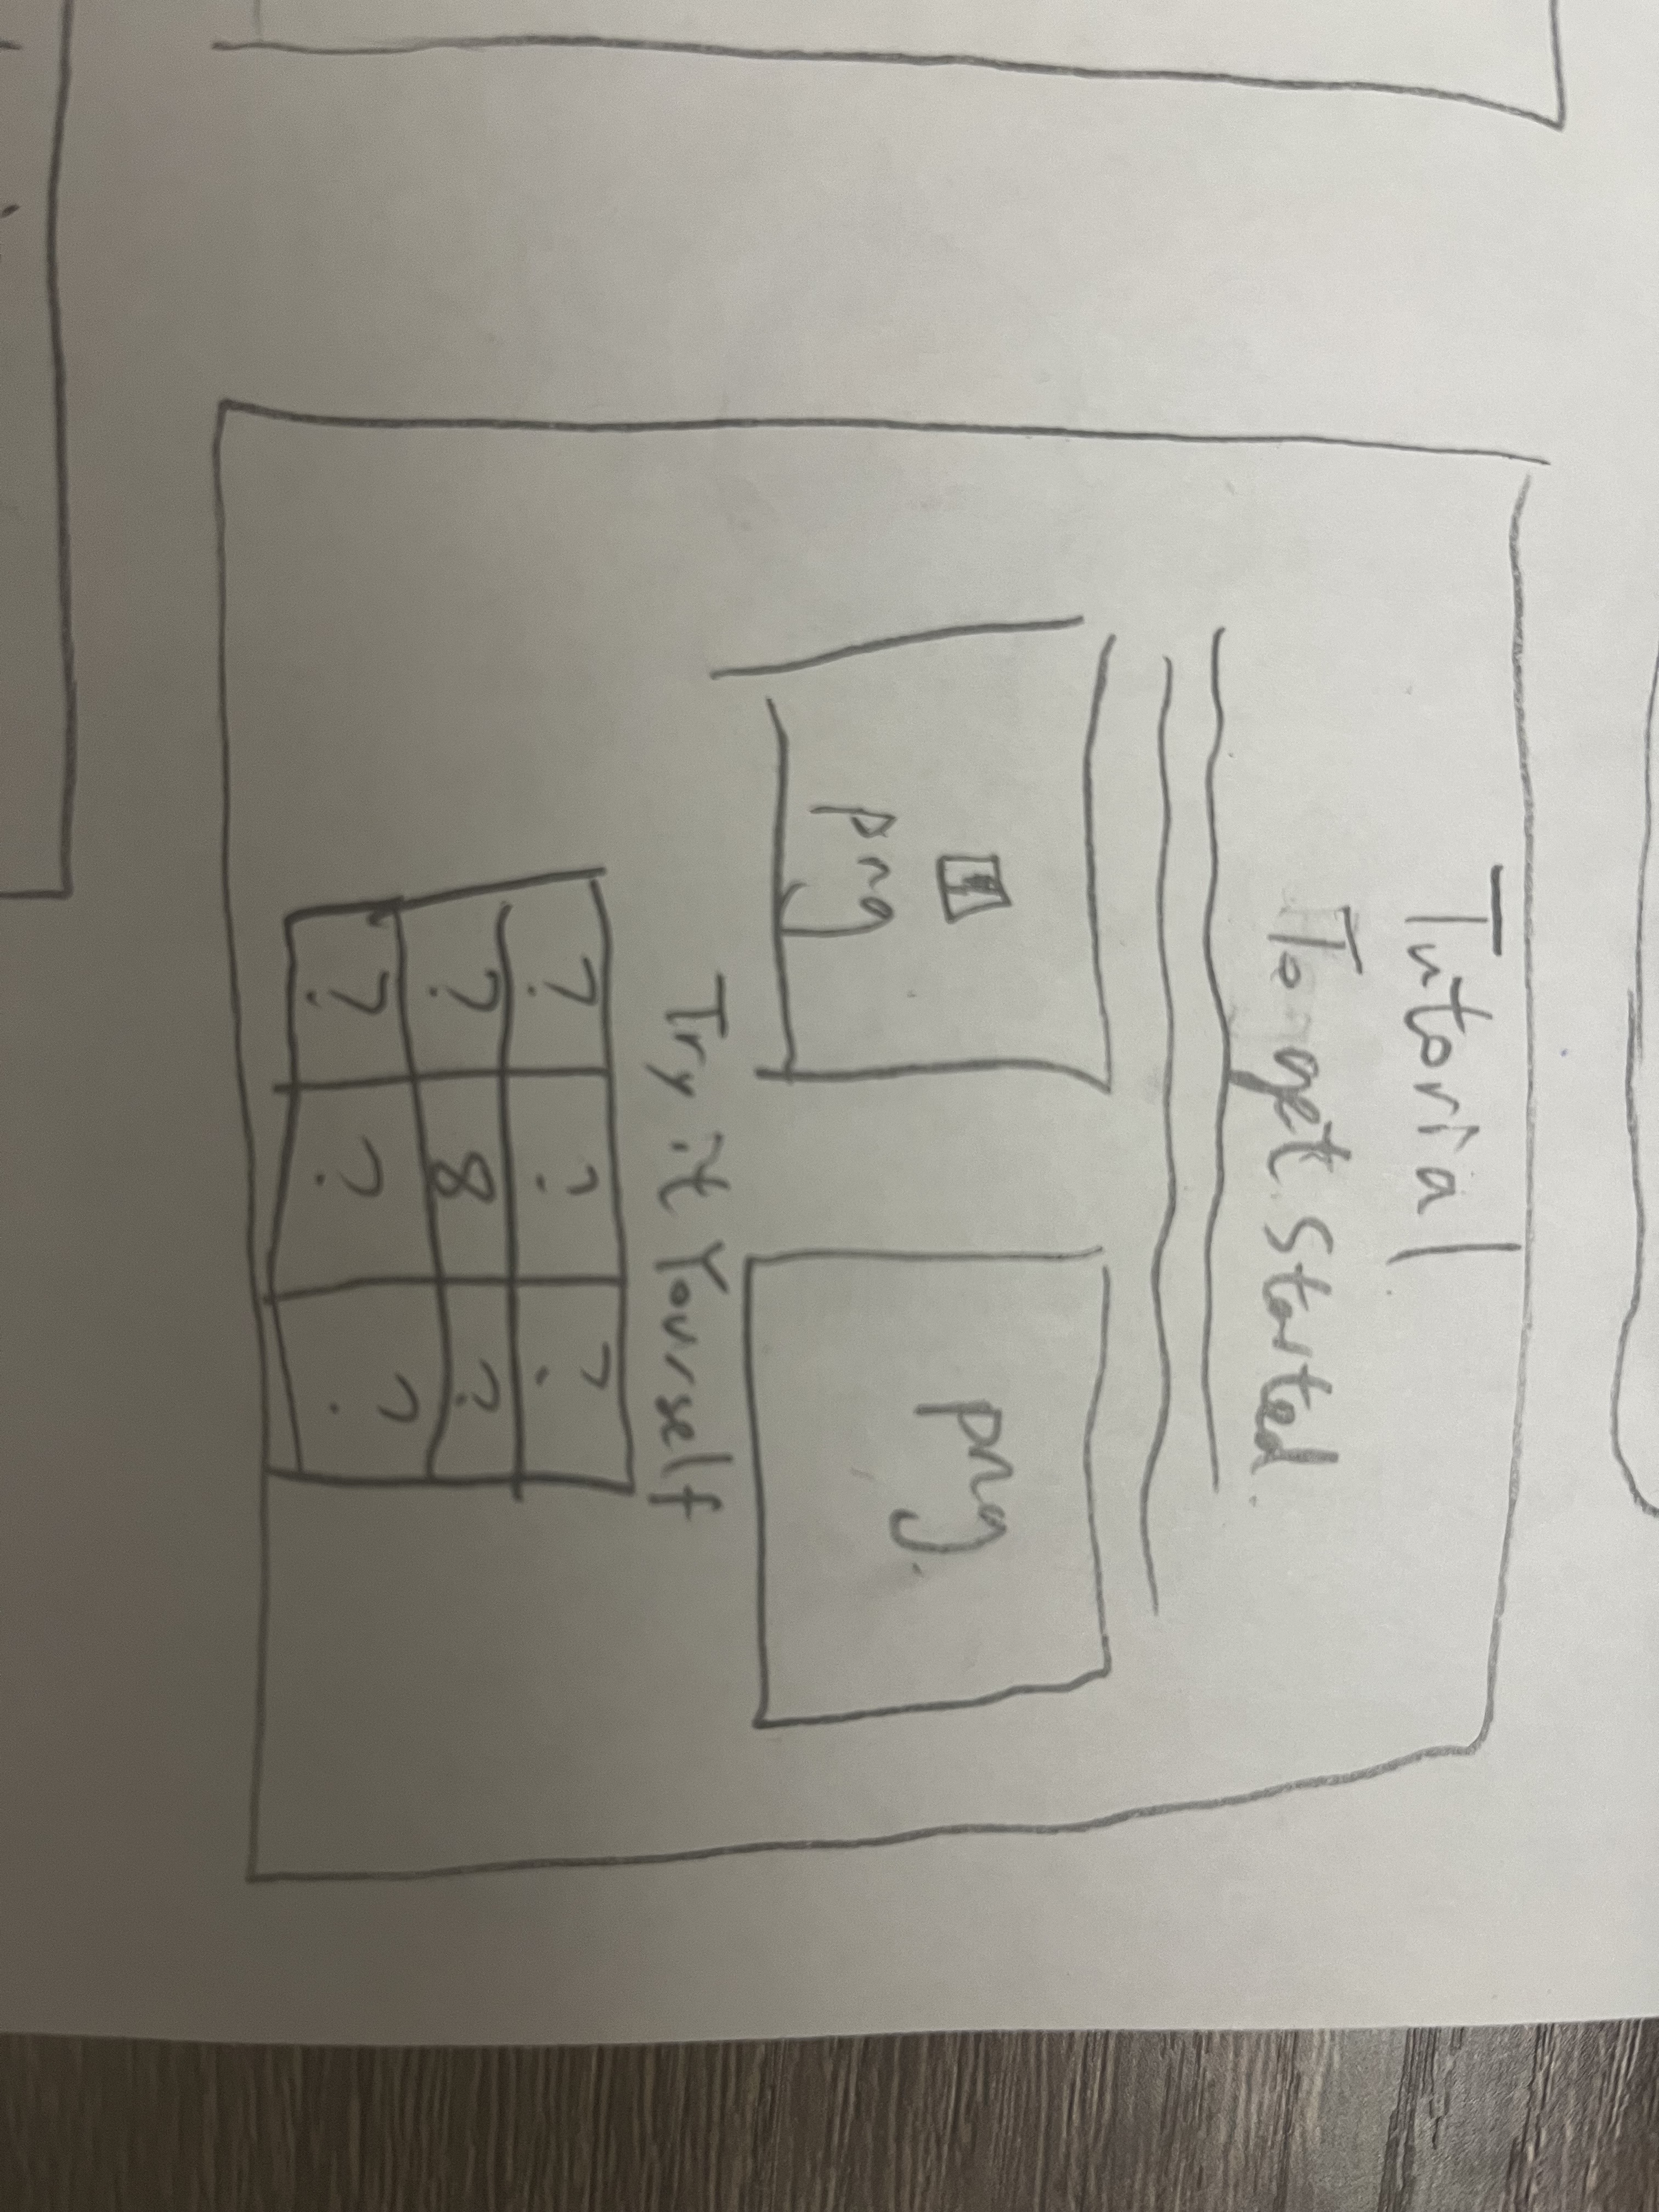 Tutorial
To get started.
png
png.
Try it Yourself
? ? ?
? 8 ?
? ? ?